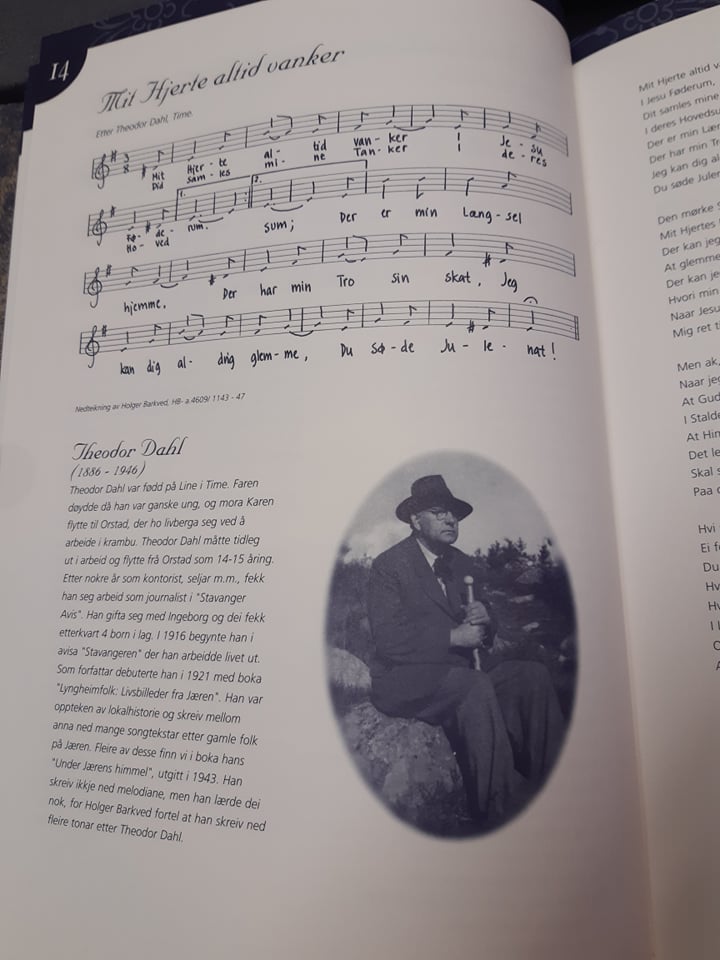 14
Mit Hjerte altid vanker
Etter Theodor Dahl, Time.
Mit Hjer - te al - tid van - ker i Je - su
Did sam - les mi - ne Tan - ker de - res
1. 2.
Fø - de - rum. sum; Der er min Læng - sel
Ho - ved
hjemme. Der har min Tro sin skat, Jeg
kan dig al - drig glem - me, Du Sø - de Ju - le - nat!
Nedteikning av Holger Barkved, HB- a.4609/ 1143 - 47
Theodor Dahl
(1886 - 1946)
Theodor Dahl var fødd på Line i Time. Faren
døydde då han var ganske ung, og mora Karen
flytte til Orstad, der ho livberga seg ved å
arbeide i krambu. Theodor Dahl måtte tidleg
ut i arbeid og flytte frå Orstad som 14-15 åring.
Etter nokre år som kontorist, seljar m.m., fekk
han seg arbeid som journalist i "Stavanger
Avis". Han gifta seg med Ingeborg og dei fekk
etterkvart 4 born i lag. I 1916 begynte han i
avisa "Stavangeren" der han arbeidde livet ut.
Som forfattar debuterte han i 1921 med boka
"Lyngheimfolk: Livsbilleder fra Jæren". Han var
oppteken av lokalhistorie og skreiv mellom
anna ned mange songtekstar etter gamle folk
på Jæren. Fleire av desse finn vi i boka hans
"Under Jærens himmel", utgitt i 1943. Han
skreiv ikkje ned melodiane, men han lærde dei
nok, for Holger Barkved fortel at han skreiv ned
fleire tonar etter Theodor Dahl.
Mit Hjerte altid
I Jesu Føderum,
Dit samles mine
I deres
Der er min
Der har min
Jeg kan dig
Du søde
Den mørke
Mit Hjertes
Der kan jeg
At glemme
Der kan
Hvori min
Naar Jesu
Mig ret
Men ak,
Naar
At Gud
I
At
Det
Skal
Paa
Hvi
Ei
Du